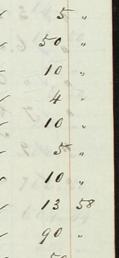 ✓ 5 "
✓ 50 "
✓ 10 "
✓ 4 "
✓ 10 "
✓ 5 "
✓ 10 "
✓ 13 58
✓ 90 "